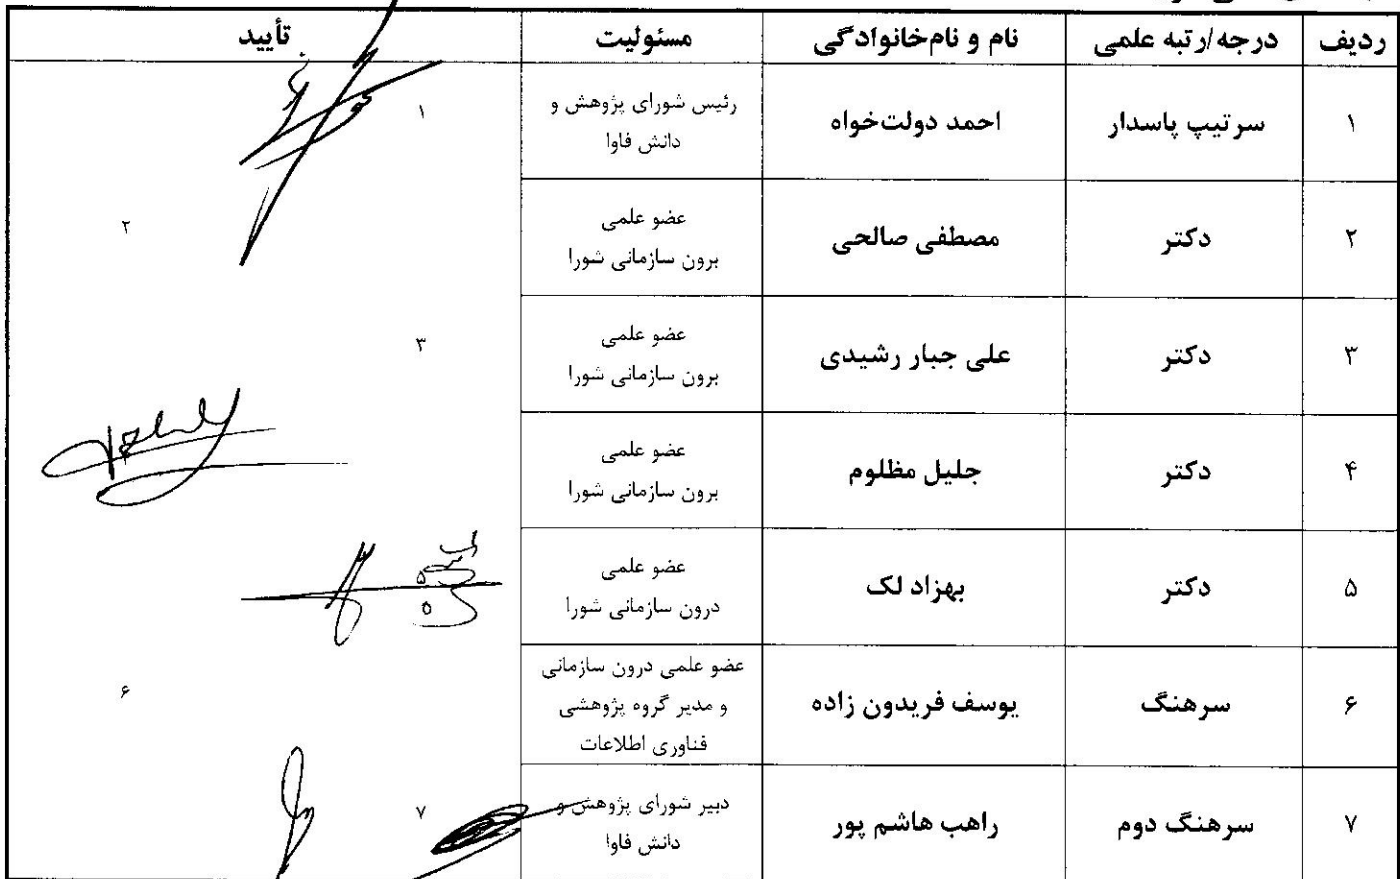 ردیف درجه/رتبه علمی نام و نام‌خانوادگی مسئولیت تأیید
۱ سرتیپ پاسدار احمد دولت‌خواه رئیس شورای پژوهش و دانش فاوا ۱
۲ دکتر مصطفی صالحی عضو علمی برون سازمانی شورا ۲
۳ دکتر علی جبار رشیدی عضو علمی برون سازمانی شورا ۳
۴ دکتر جلیل مظلوم عضو علمی برون سازمانی شورا
۵ دکتر بهزاد لک عضو علمی درون سازمانی شورا ۵
۶ سرهنگ یوسف فریدون زاده عضو علمی درون سازمانی و مدیر گروه پژوهشی فناوری اطلاعات ۶
۷ سرهنگ دوم راهب هاشم پور دبیر شورای پژوهش و دانش فاوا ۷